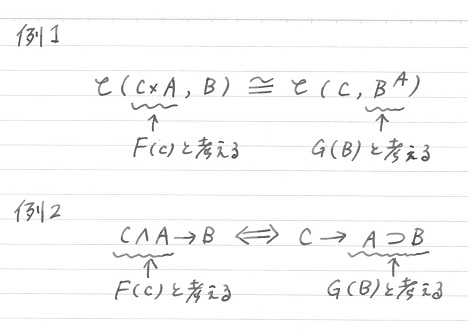 例1
𝒞(C×A, B) ≅ 𝒞(C, B^A)
↑ ↑
F(C)と考える G(B)と考える
例2
C∧A→B ⟺ C→A⊃B
↑ ↑
F(C)と考える G(B)と考える